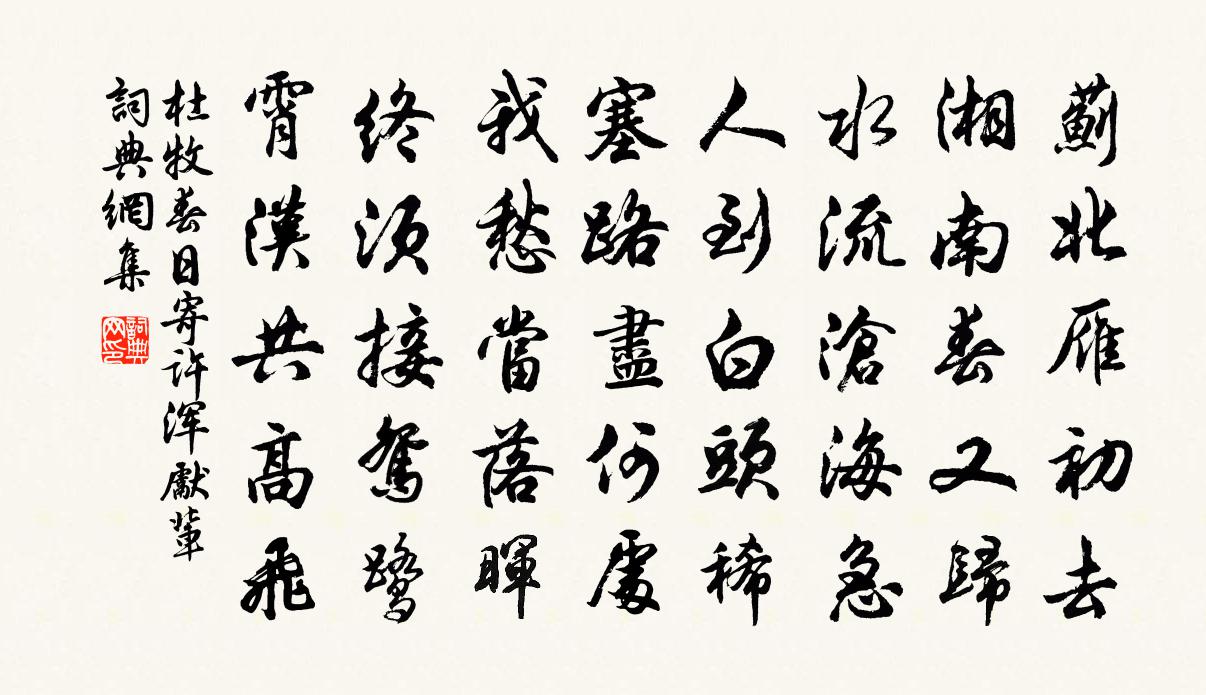 薊北雁初去
湘南春又歸
水流滄海急
人到白頭稀
塞路盡何處
我愁當落暉
終須接鴛鷺
霄漢共高飛
杜牧春日寄许浑獻輩
詞典網集
詞典网印